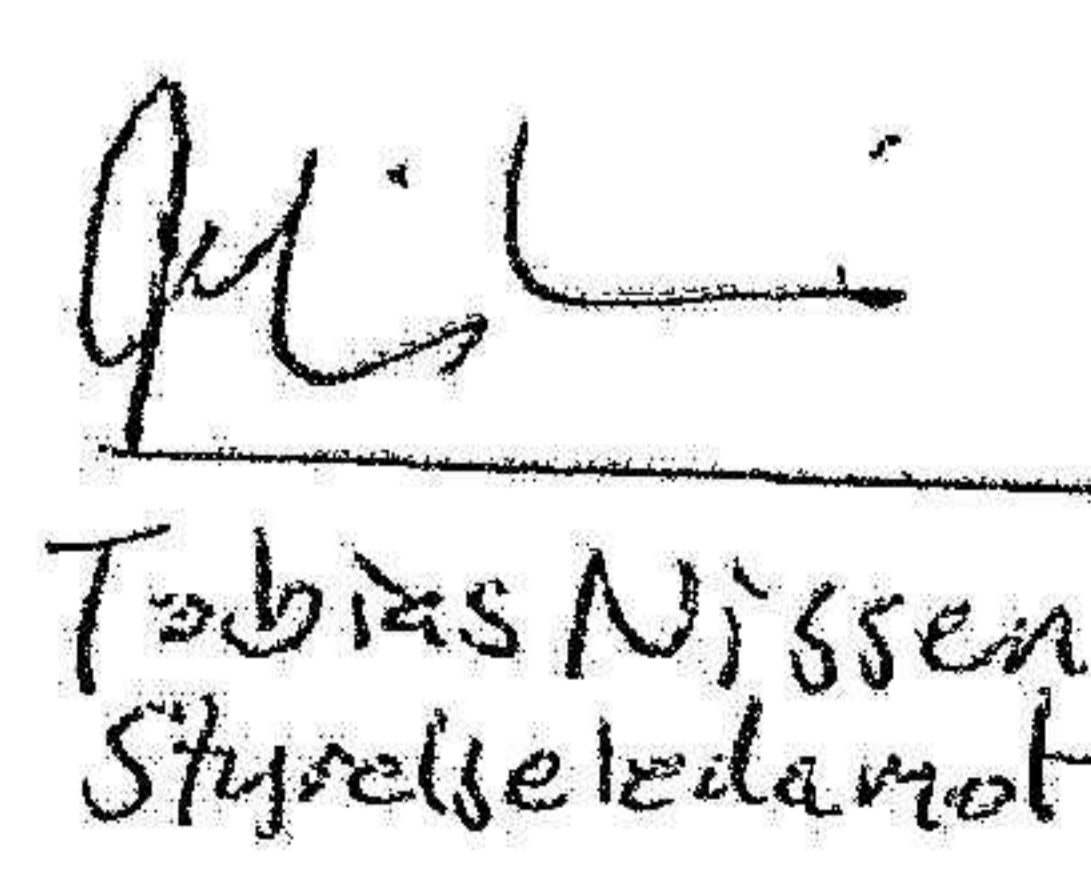 Tobias Nissen
Styrelseledamot